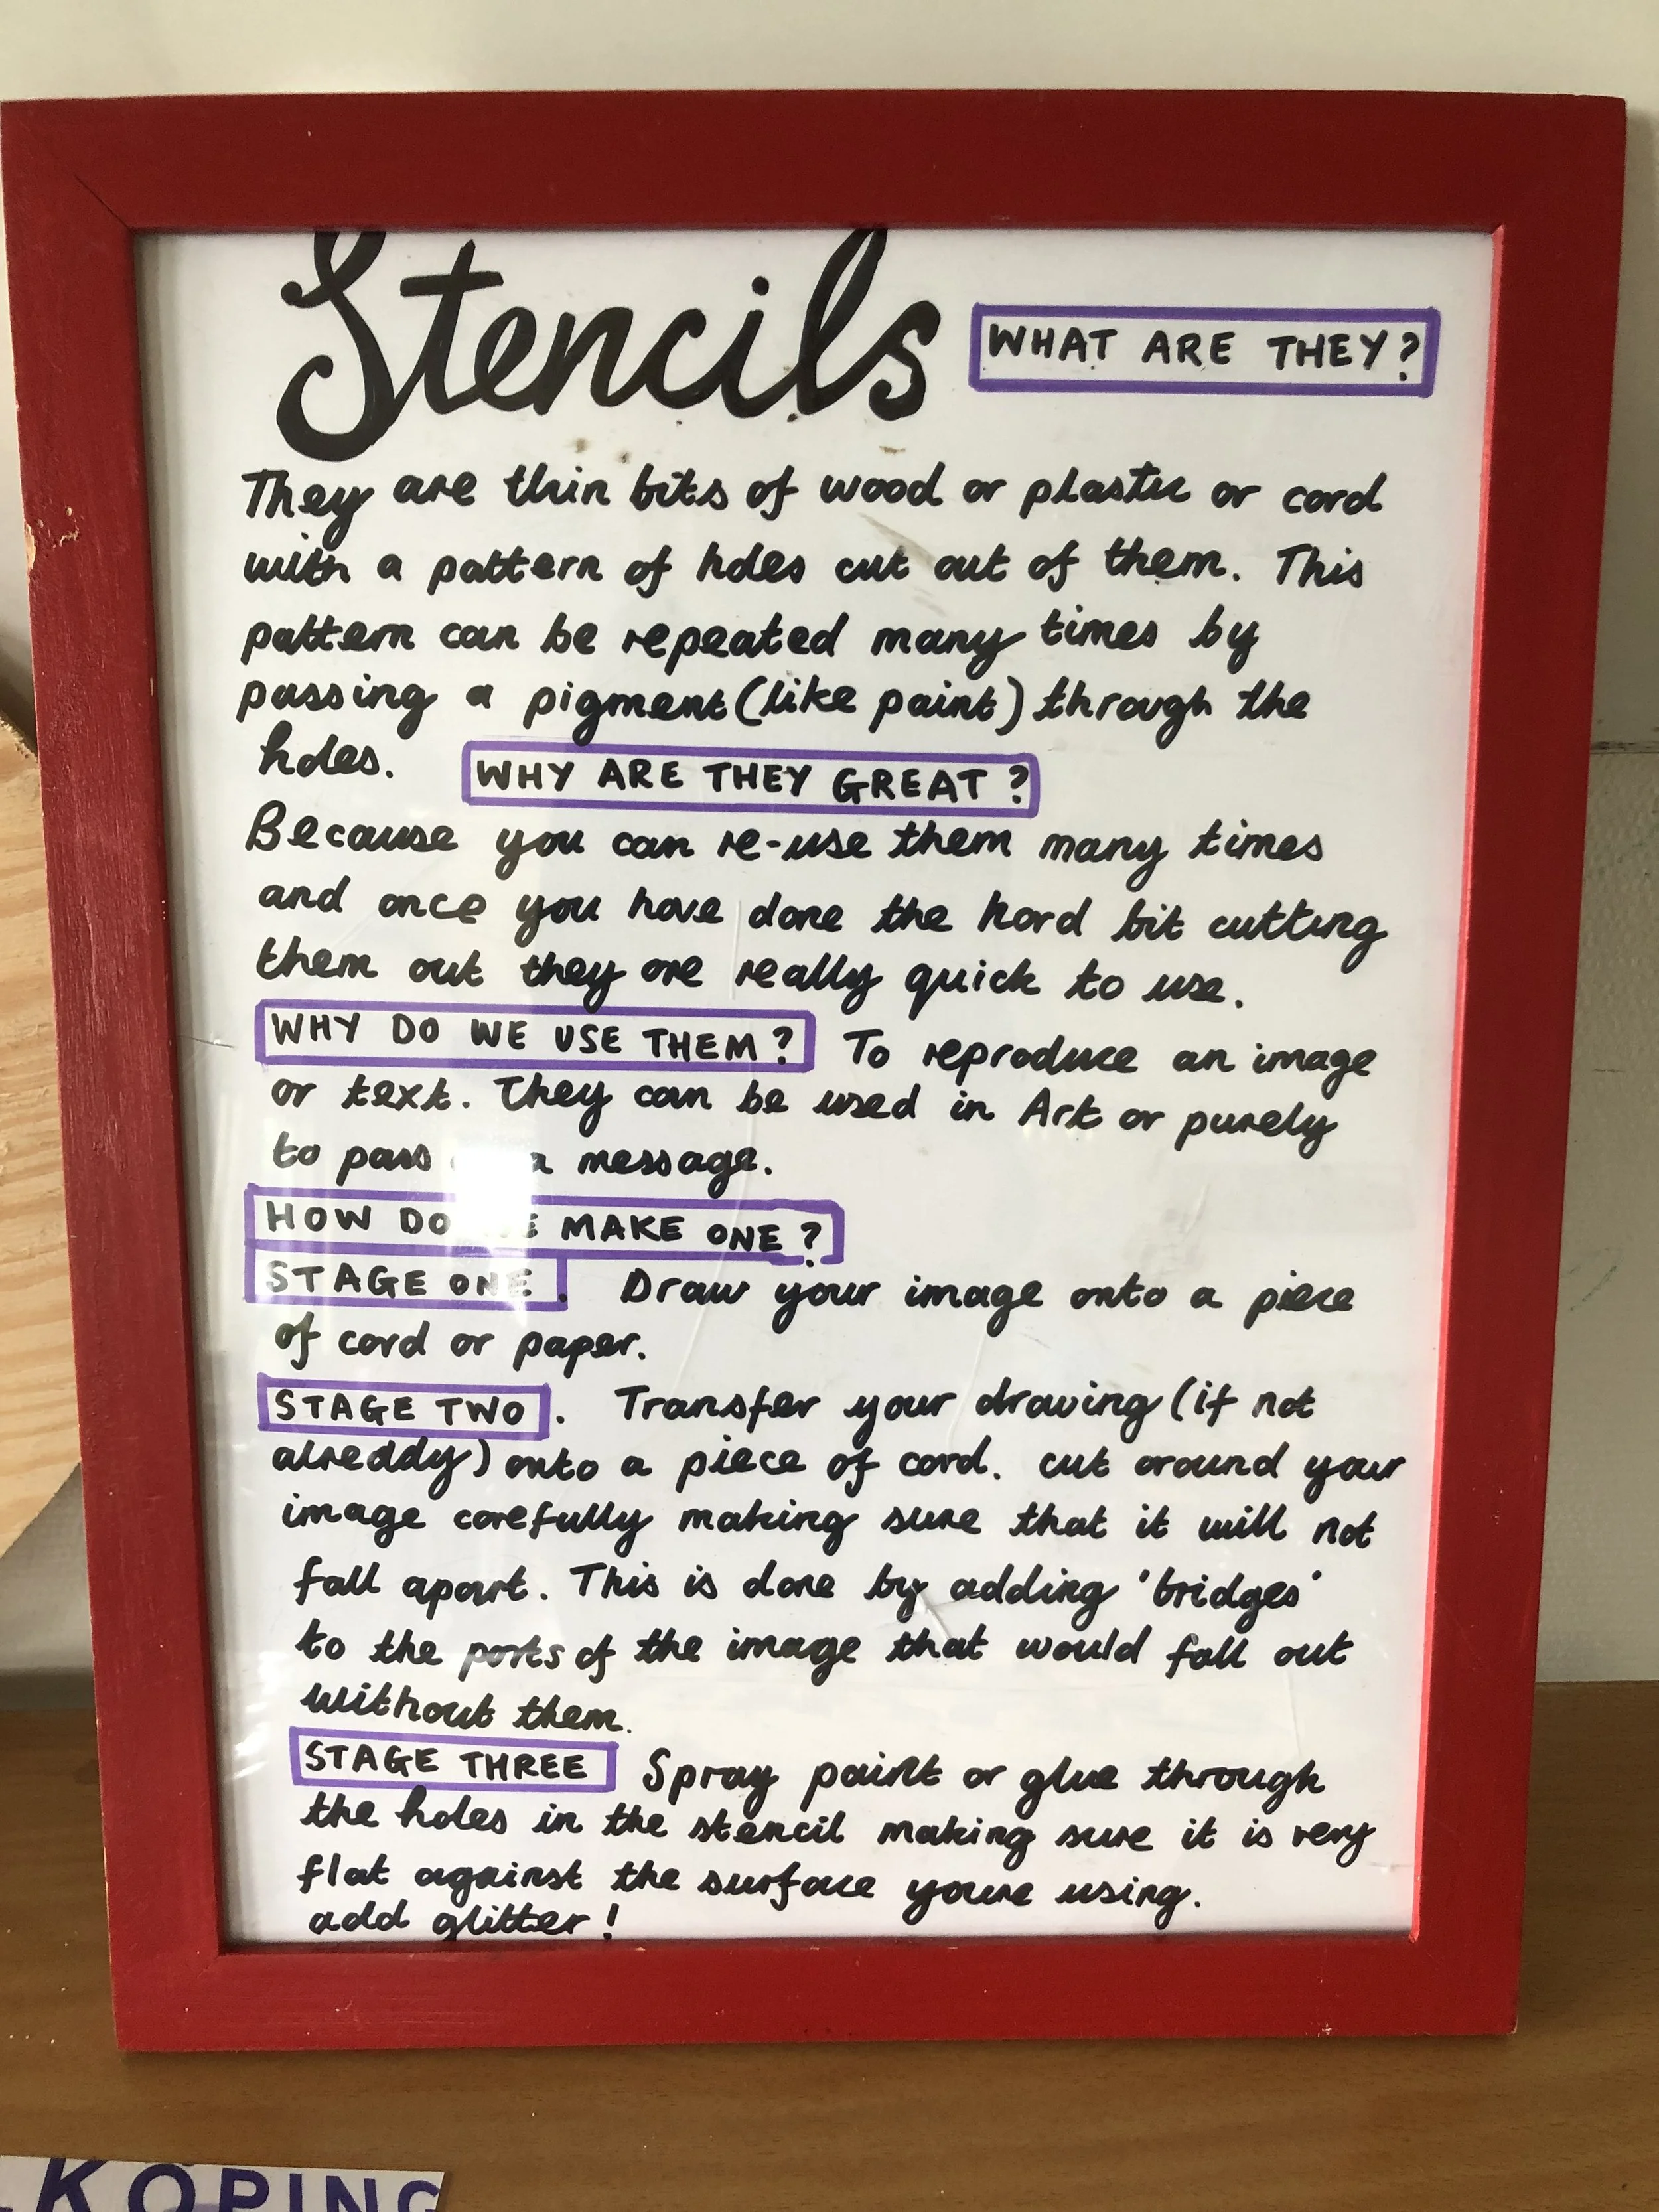 Stencils WHAT ARE THEY?
They are thin bits of wood or plastic or card
with a pattern of holes cut out of them. This
pattern can be repeated many times by
passing a pigment (like paint) through the
holes. WHY ARE THEY GREAT?
Because you can re-use them many times
and once you have done the hard bit cutting
them out they are really quick to use.
WHY DO WE USE THEM? To reproduce an image
or text. They can be used in Art or purely
to pass a message.
HOW DO MAKE ONE?
STAGE ONE. Draw your image onto a piece
of card or paper.
STAGE TWO. Transfer your drawing (if not
alreddy) onto a piece of card. cut around your
image carefully making sure that it will not
fall apart. This is done by adding 'bridges'
to the parts of the image that would fall out
without them.
STAGE THREE Spray paint or glue through
the holes in the stencil making sure it is very
flat against the surface youre using.
add glitter!
KÖPING